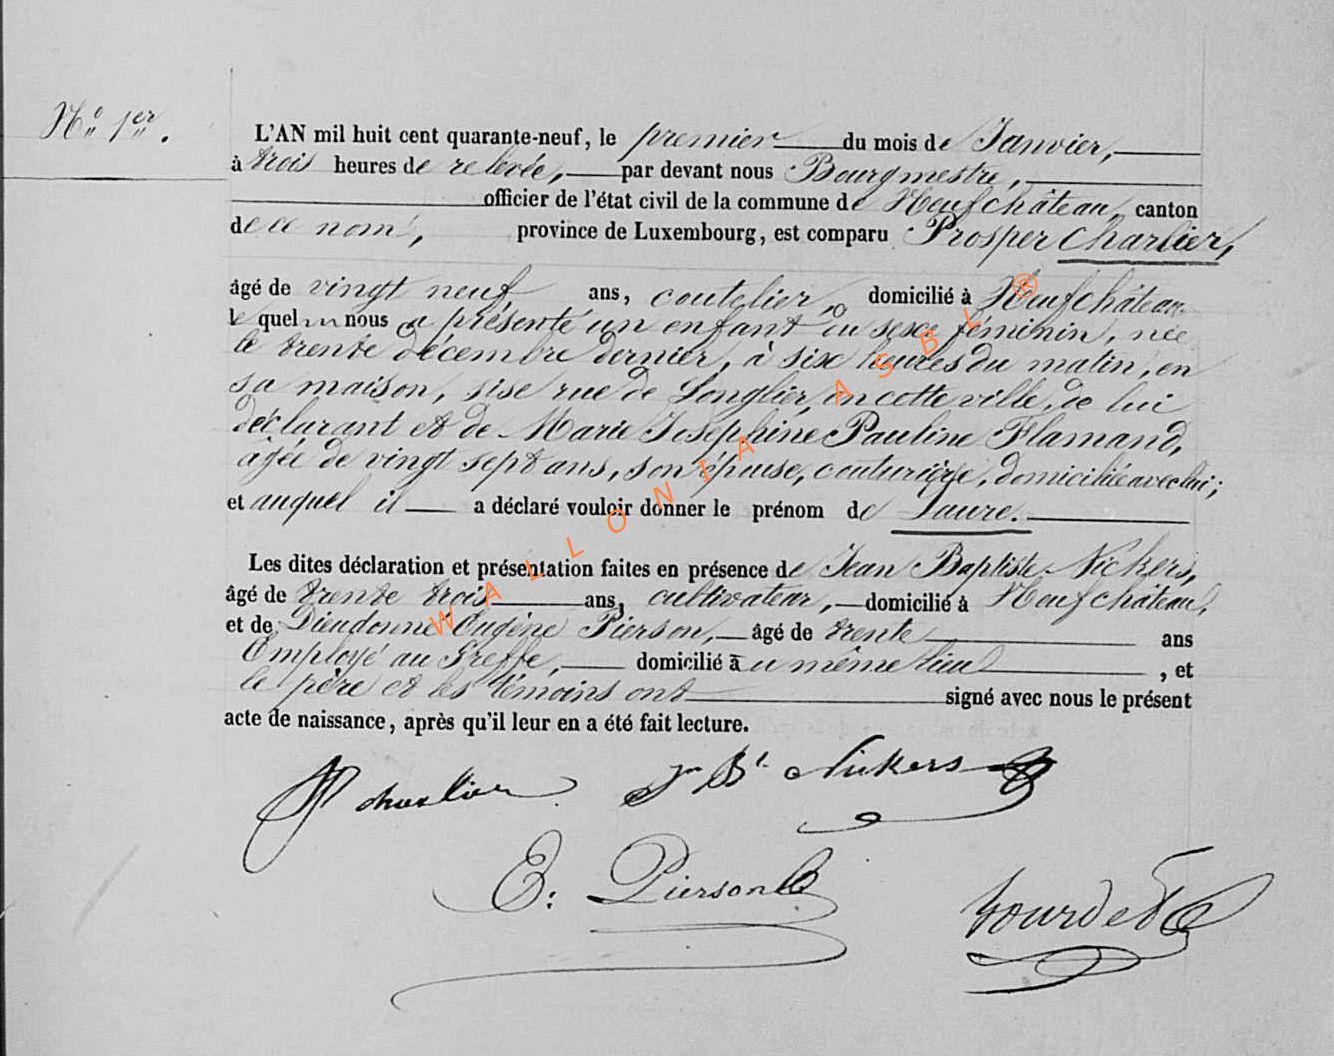 N.° 1er.
L'AN mil huit cent quarante-neuf, le premier du mois de Janvier,
à trois heures de relevée, par devant nous Bourgmestre,
officier de l'état civil de la commune de Neufchâteau, canton
de ce nom, province de Luxembourg, est comparu Prosper Charlier,
âgé de vingt neuf ans, coutelier, domicilié à Neufchâteau
lequel nous a présenté un enfant du sexe féminin, née
le trente décembre dernier, à six heures du matin, en
sa maison, sise rue de Longlier, en cette ville, de lui
déclarant et de Marie Joséphine Pauline Flamand,
agée de vingt sept ans, son épouse, couturière, domiciliée avec lui;
et auquel il a déclaré vouloir donner le prénom de Laure.
Les dites déclaration et présentation faites en présence de Jean Baptiste Nickers,
âgé de trente trois ans, cultivateur, domicilié à Neufchâteau,
et de Dieudonné Eugène Pierson, âgé de trente ans
Employé au Greffe, domicilié au même lieu, et
le père et les témoins ont signé avec nous le présent
acte de naissance, après qu'il leur en a été fait lecture.
P charlier Jn Bte Nickers
E: Pierson
WALLONIA ASBL®